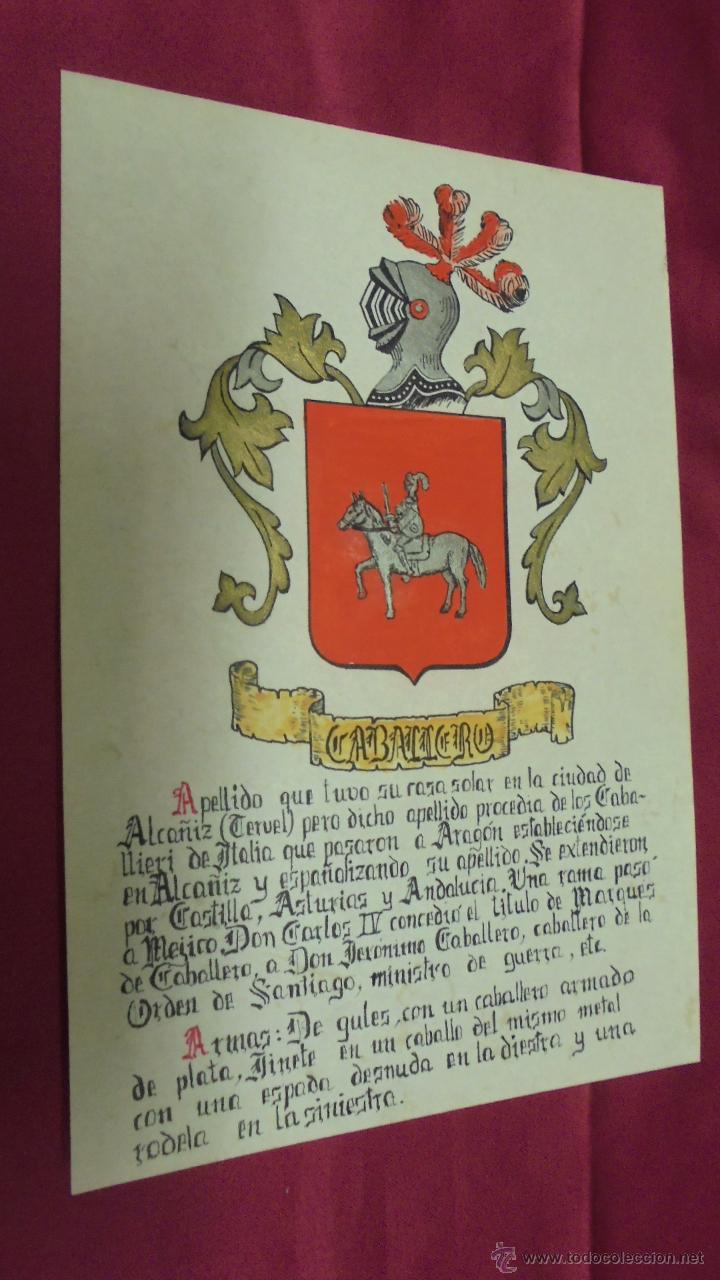 CABALLERO
Apellido que tuvo su casa solar en la ciudad de
Alcañiz (Teruel) pero dicho apellido procedia de los Caba-
llieri de Italia que pasaron a Aragón estableciéndose
en Alcañiz y españolizando su apellido. Se extendieron
por Castilla, Asturias y Andalucia. Una rama pasó
a Mejico. Don Carlos IV concedió el titulo de Marques
de Caballero, a Don Jerónimo Caballero, caballero de la
Orden de Santiago, ministro de guerra, etc.
Armas: De gules, con un caballero armado
de plata, Jinete en un caballo del mismo metal
con una espada desnuda en la diestra y una
rodela en la siniestra.
© www.todocoleccion.net